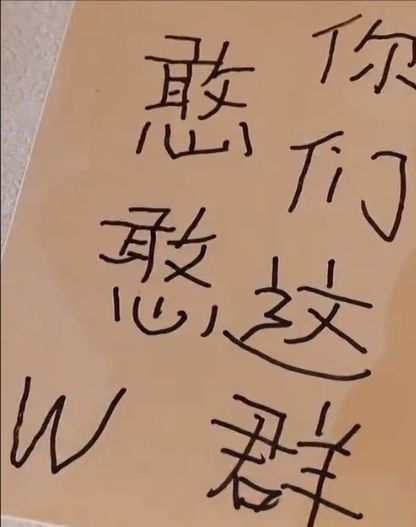 你们这群
憨憨
W